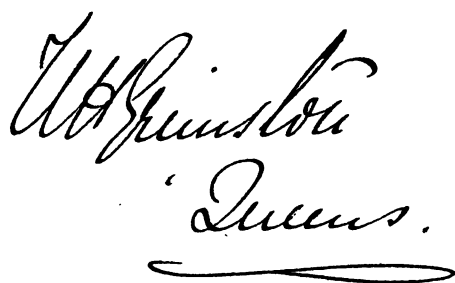 W H Grimston
Queens.